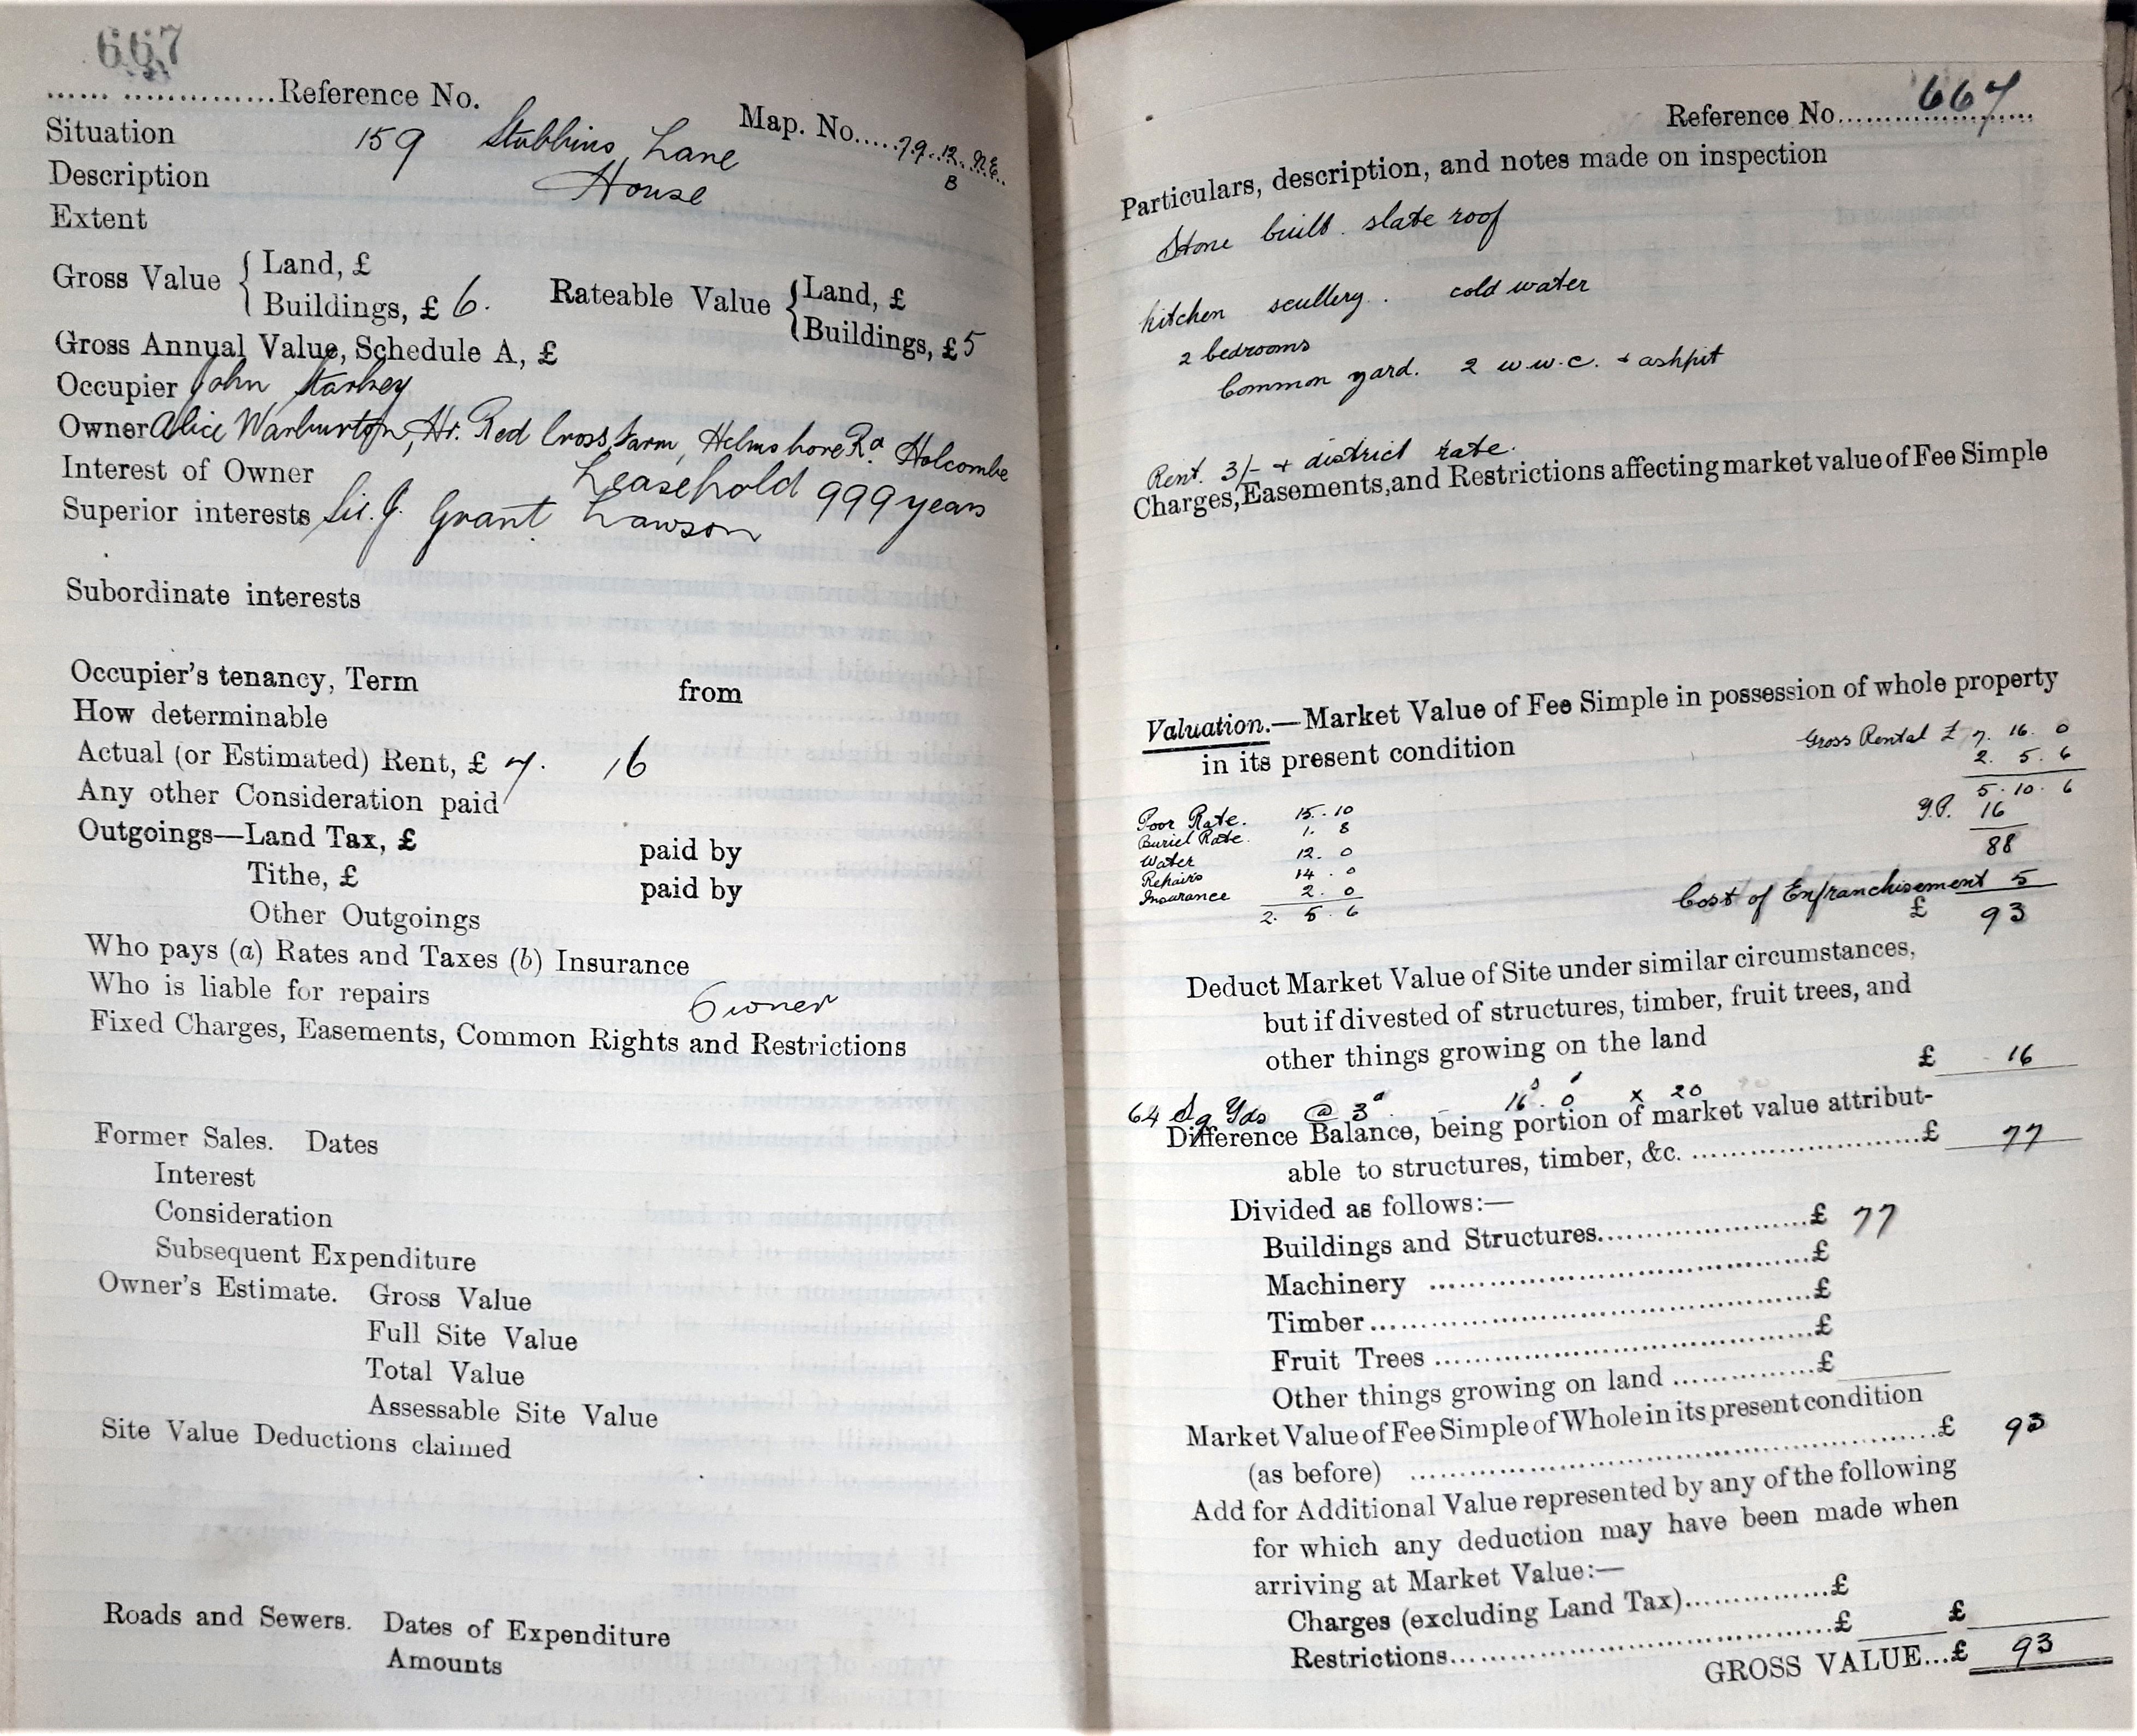 667
...... ..............Reference No.
Map. No.....79.12.N.E.
B
Situation 159 Stubbins Lane
Description House
Extent
Gross Value { Land, £
Buildings, £ 6. Rateable Value { Land, £
Buildings, £ 5
Gross Annual Value, Schedule A, £
Occupier John Starkey
Owner Alice Warburton, Hr. Red Cross Farm, Helmshore Rd Holcombe
Interest of Owner Leasehold 999 years
Superior interests Sir. J. Grant Lawson
Subordinate interests
Occupier's tenancy, Term from
How determinable
Actual (or Estimated) Rent, £ 7. 16
Any other Consideration paid
Outgoings—Land Tax, £ paid by
Tithe, £ paid by
Other Outgoings
Who pays (a) Rates and Taxes (b) Insurance
Who is liable for repairs Owner
Fixed Charges, Easements, Common Rights and Restrictions
Former Sales. Dates
Interest
Consideration
Subsequent Expenditure
Owner's Estimate. Gross Value
Full Site Value
Total Value
Assessable Site Value
Site Value Deductions claimed
Roads and Sewers. Dates of Expenditure
Amounts
Reference No. 667
Particulars, description, and notes made on inspection
Stone built. slate roof
kitchen scullery. cold water
2 bedrooms
Common yard. 2 w.w.c. + ashpit
Rent. 3/- + district rate.
Charges, Easements, and Restrictions affecting market value of Fee Simple
Valuation.—Market Value of Fee Simple in possession of whole property
in its present condition
Gross Rental £ 7. 16. 0
2. 5. 6
5. 10. 6
Y.P. 16
88
Cost of Enfranchisement 5
£ 93
Poor Rate. 15. 10
Buriel Rate. 1. 8
Water 12. 0
Repairs 14. 0
Insurance 2. 0
2. 5. 6
Deduct Market Value of Site under similar circumstances,
but if divested of structures, timber, fruit trees, and
other things growing on the land £ 16
64 Sq Yds @ 3d - 16s. 0d x 20
Difference Balance, being portion of market value attribut-
able to structures, timber, &c. .......................£ 77
Divided as follows:—
Buildings and Structures......................£ 77
Machinery .......................................£
Timber.............................................£
Fruit Trees .......................................£
Other things growing on land ...............£
Market Value of Fee Simple of Whole in its present condition
(as before) .............................................£ 93
Add for Additional Value represented by any of the following
for which any deduction may have been made when
arriving at Market Value:—
Charges (excluding Land Tax)...............£
Restrictions.......................................£ £
GROSS VALUE...£ 93